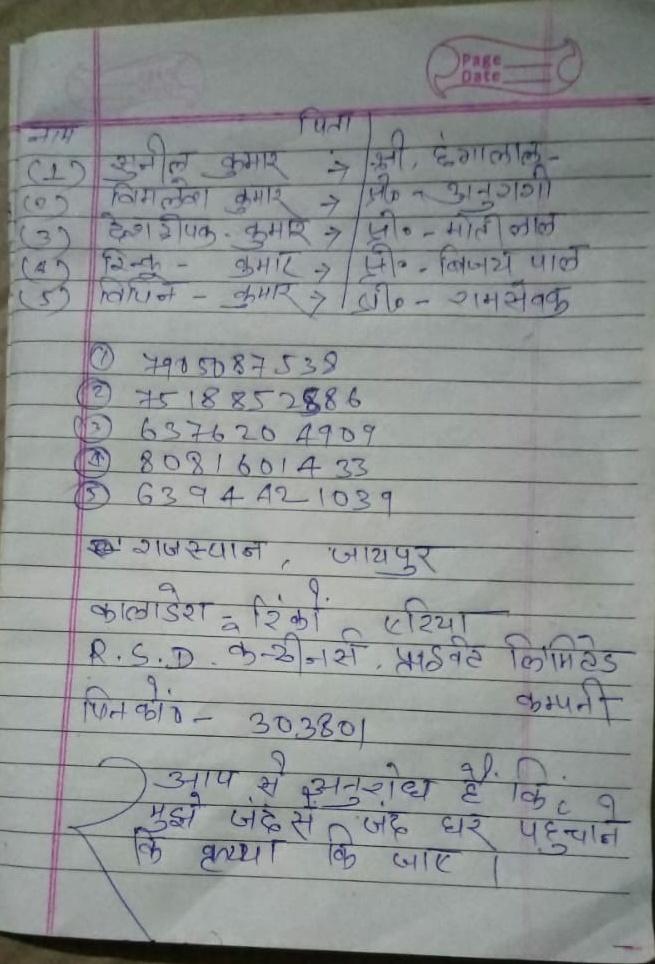 Page
Date
नाम पिता
(1) सुनील कुमार → श्री. छंगालाल -
(2) विमलेश कुमार → प्री० -
(3) देशदीपक - कुमार → प्री० - मोतीलाल
(4) रिन्कू - कुमार → प्री० - विजय पाल
(5) विपिन - कुमार → प्री० - रामसेवक
① 7905087538
② 7518852886
③ 6376204909
④ 8081601433
⑤ 6394421039
राजस्थान, जायपुर
कालाडेरा - रिंको एरिया
R.S.D. कन्टीनर्स. प्राईवेट लिमिटेड
कम्पनी
पिनकोड - 303801
आप से अनुरोध है कि
मुझे जंद से जंद घर पहुन्चाने
कि कृप्या कि जाए।